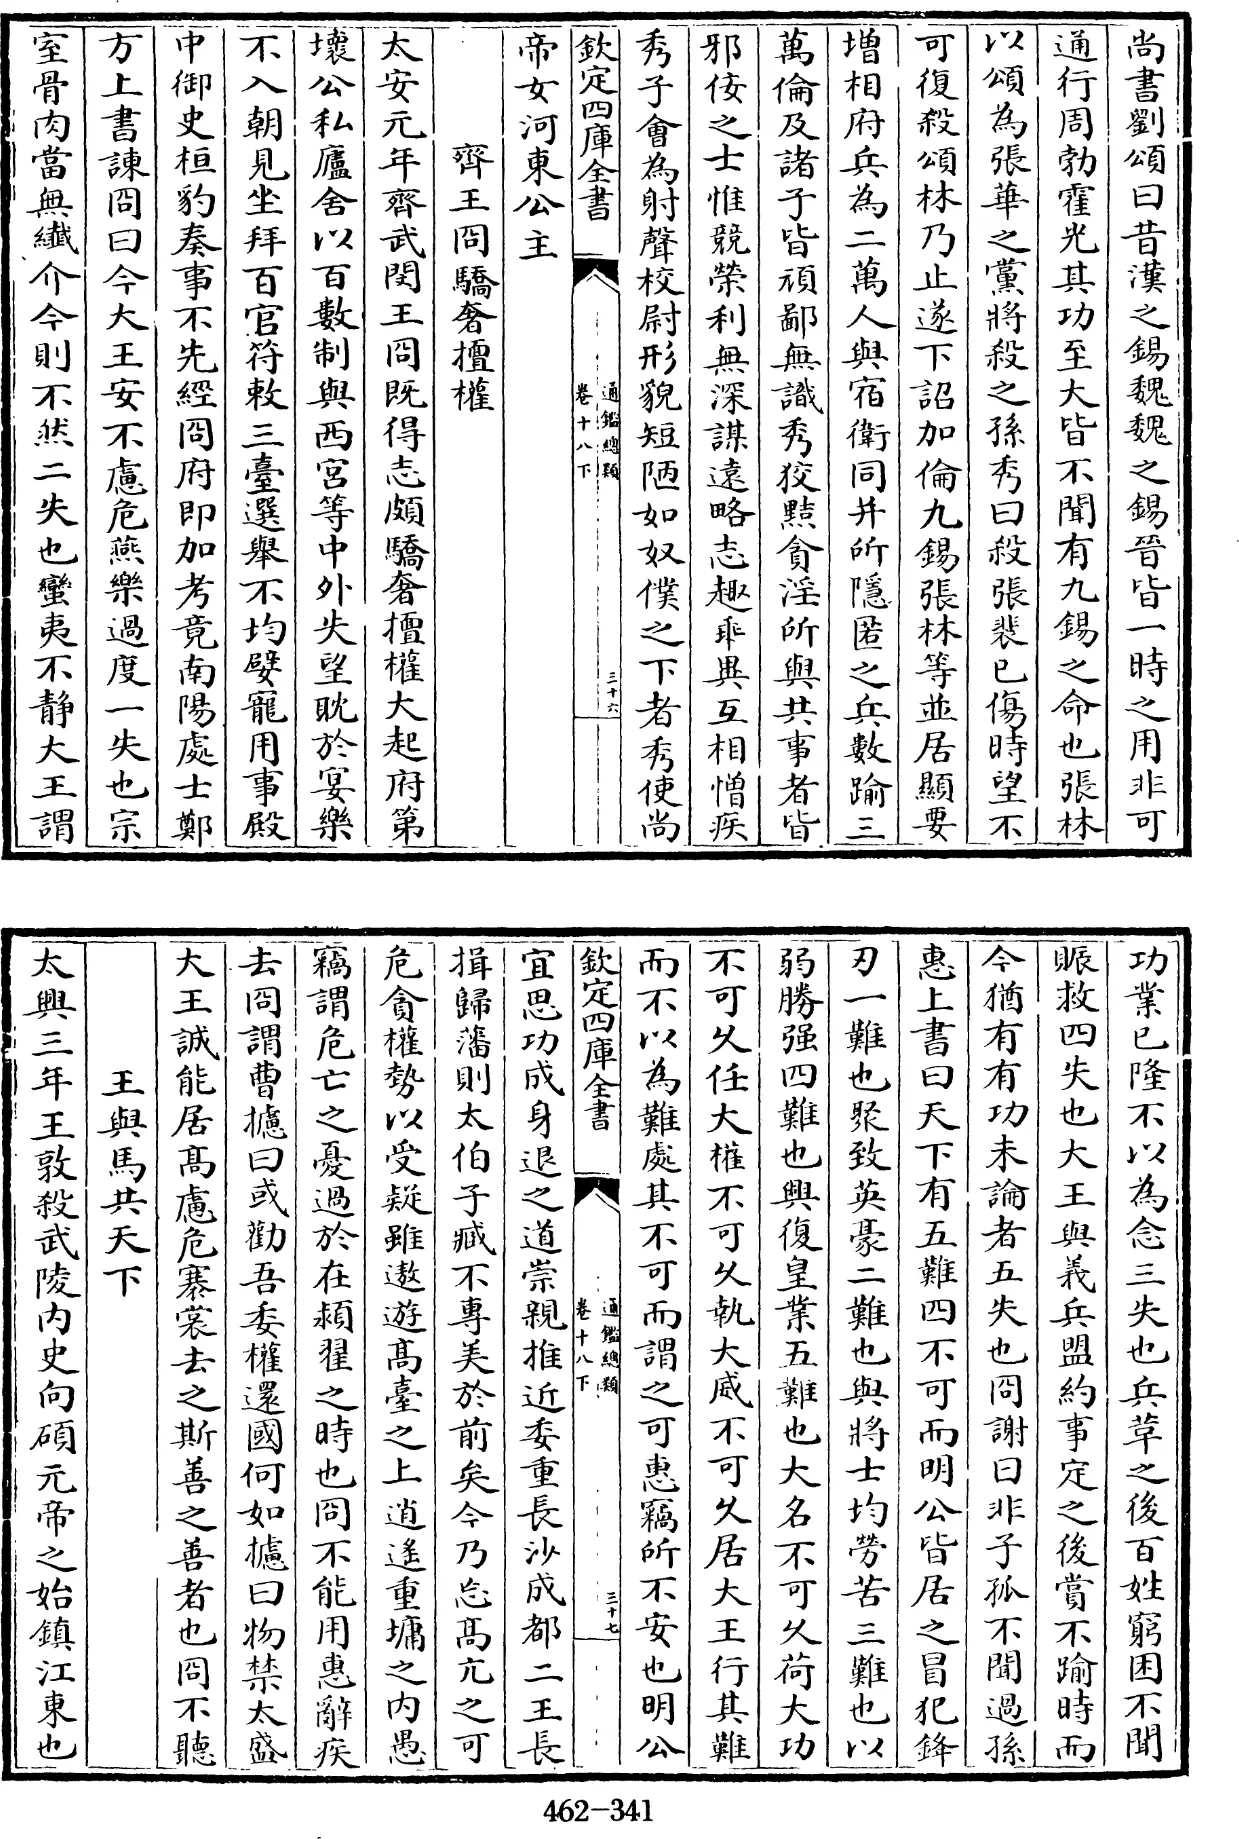 尚書劉頌曰昔漢之錫魏魏之錫晉皆一時之用非可
通行周勃霍光其功至大皆不聞有九錫之命也張林
以頌為張華之黨將殺之孫秀曰殺張裴已傷時望不
可復殺頌林乃止遂下詔加倫九錫張林等並居顯要
增相府兵為二萬人與宿衛同并所隱匿之兵數踰三
萬倫及諸子皆頑鄙無識秀狡黠貪淫所與共事者皆
邪佞之士惟競榮利無深謀遠略志趣乖異互相憎疾
秀子會為射聲校尉形貌短陋如奴僕之下者秀使尚
欽定四庫全書
通鑑總類
卷十八下
三十六
帝女河東公主
齊王冏驕奢擅權
太安元年齊武閔王冏既得志頗驕奢擅權大起府第
壞公私廬舍以百數制與西宮等中外失望耽於宴樂
不入朝見坐拜百官符敕三臺選舉不均嬖寵用事殿
中御史桓豹奏事不先經冏府即加考竟南陽處士鄭
方上書諫冏曰今大王安不慮危燕樂過度一失也宗
室骨肉當無纖介今則不然二失也蠻夷不靜大王謂
功業已隆不以為念三失也兵革之後百姓窮困不聞
賑救四失也大王與義兵盟約事定之後賞不踰時而
今猶有有功未論者五失也冏謝曰非子孤不聞過孫
惠上書曰天下有五難四不可而明公皆居之冒犯鋒
刃一難也聚致英豪二難也與將士均勞苦三難也以
弱勝强四難也興復皇業五難也大名不可久荷大功
不可久任大權不可久執大威不可久居大王行其難
而不以為難處其不可而謂之可惠竊所不安也明公
欽定四庫全書
通鑑總類
卷十八下
三十七
宜思功成身退之道崇親推近委重長沙成都二王長
揖歸藩則太伯子臧不專美於前矣今乃忘高亢之可
危貪權勢以受疑雖遨遊高臺之上逍遙重墉之内愚
竊謂危亡之憂過於在潁翟之時也冏不能用惠辭疾
去冏謂曹攄曰或勸吾委權還國何如攄曰物禁太盛
大王誠能居高慮危褰裳去之斯善之善者也冏不聽
王與馬共天下
太興三年王敦殺武陵内史向碩元帝之始鎮江東也
462-341